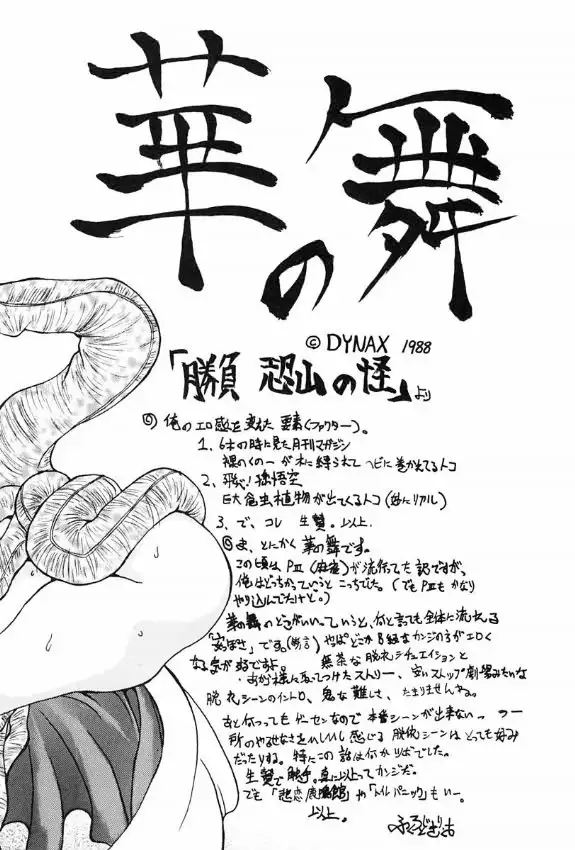 華の舞
© DYNAX 1988
「勝負 恐山の怪」より
◎ 俺のエロ感を変えた要素(ファクター)。
1、6才の時に見た月刊マガジン
裸のくの一が木に縛られてヘビに巻かれてるトコ
2、飛べ!孫悟空
巨大食虫植物が出てくるトコ(妙にリアル)
3、で、コレ 生贄。以上.
◎ま、とにかく 華の舞です。
この頃は PⅢ(麻雀)が流行ってた訳ですが、
俺はどっちかっていうとこっちでした。(でもPⅢもかなり
やり込んでたけど。)
華の舞のどこがいいっていうと、何と言っても全体に流れる
です。(断言) やっぱどこかB級なカンジの方がエロく
なる気が 無茶な脱衣シチュエイションと
取ってつけたストリー、安いストリップ劇場みたいな
脱衣シーンのイントロ、鬼な難しさ、たまりませんやね。
あと何つってもゲーセンなので 本番シーンが出来ないっつー
所のやるせなさをひしひし感じる 脱衣シーンはとっても好み
だったりする。特にこの話は何かりばでした。
生贄で触手。真に以上ってカンジだ。
でも「悲恋鹿鳴館」や「メイルパニック」もいー。
以上。